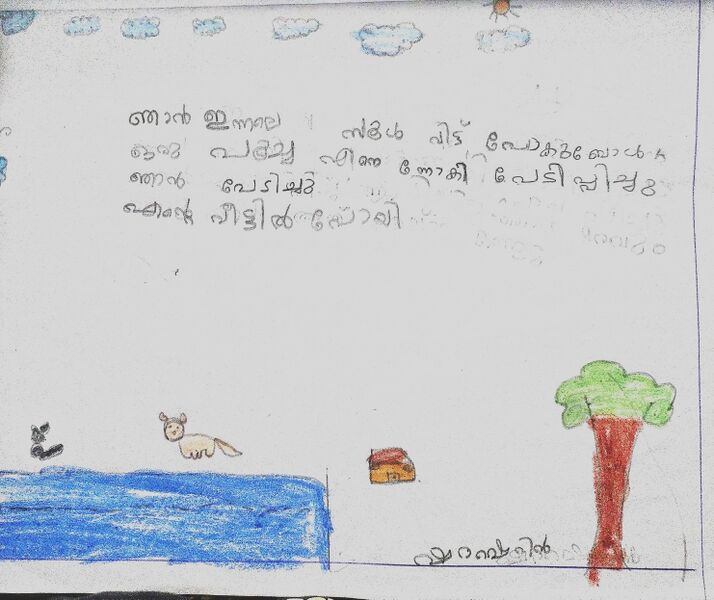 ഞാൻ ഇന്നലെ സ്കൂൾ വിട്ട് പോകുബോൾ
ഒരു പൂച്ച എന്നെ നോകി പേടിപ്പിച്ചു
ഞാൻ പേടിച്ചു
എന്റെ വീട്ടിൽ പോയി